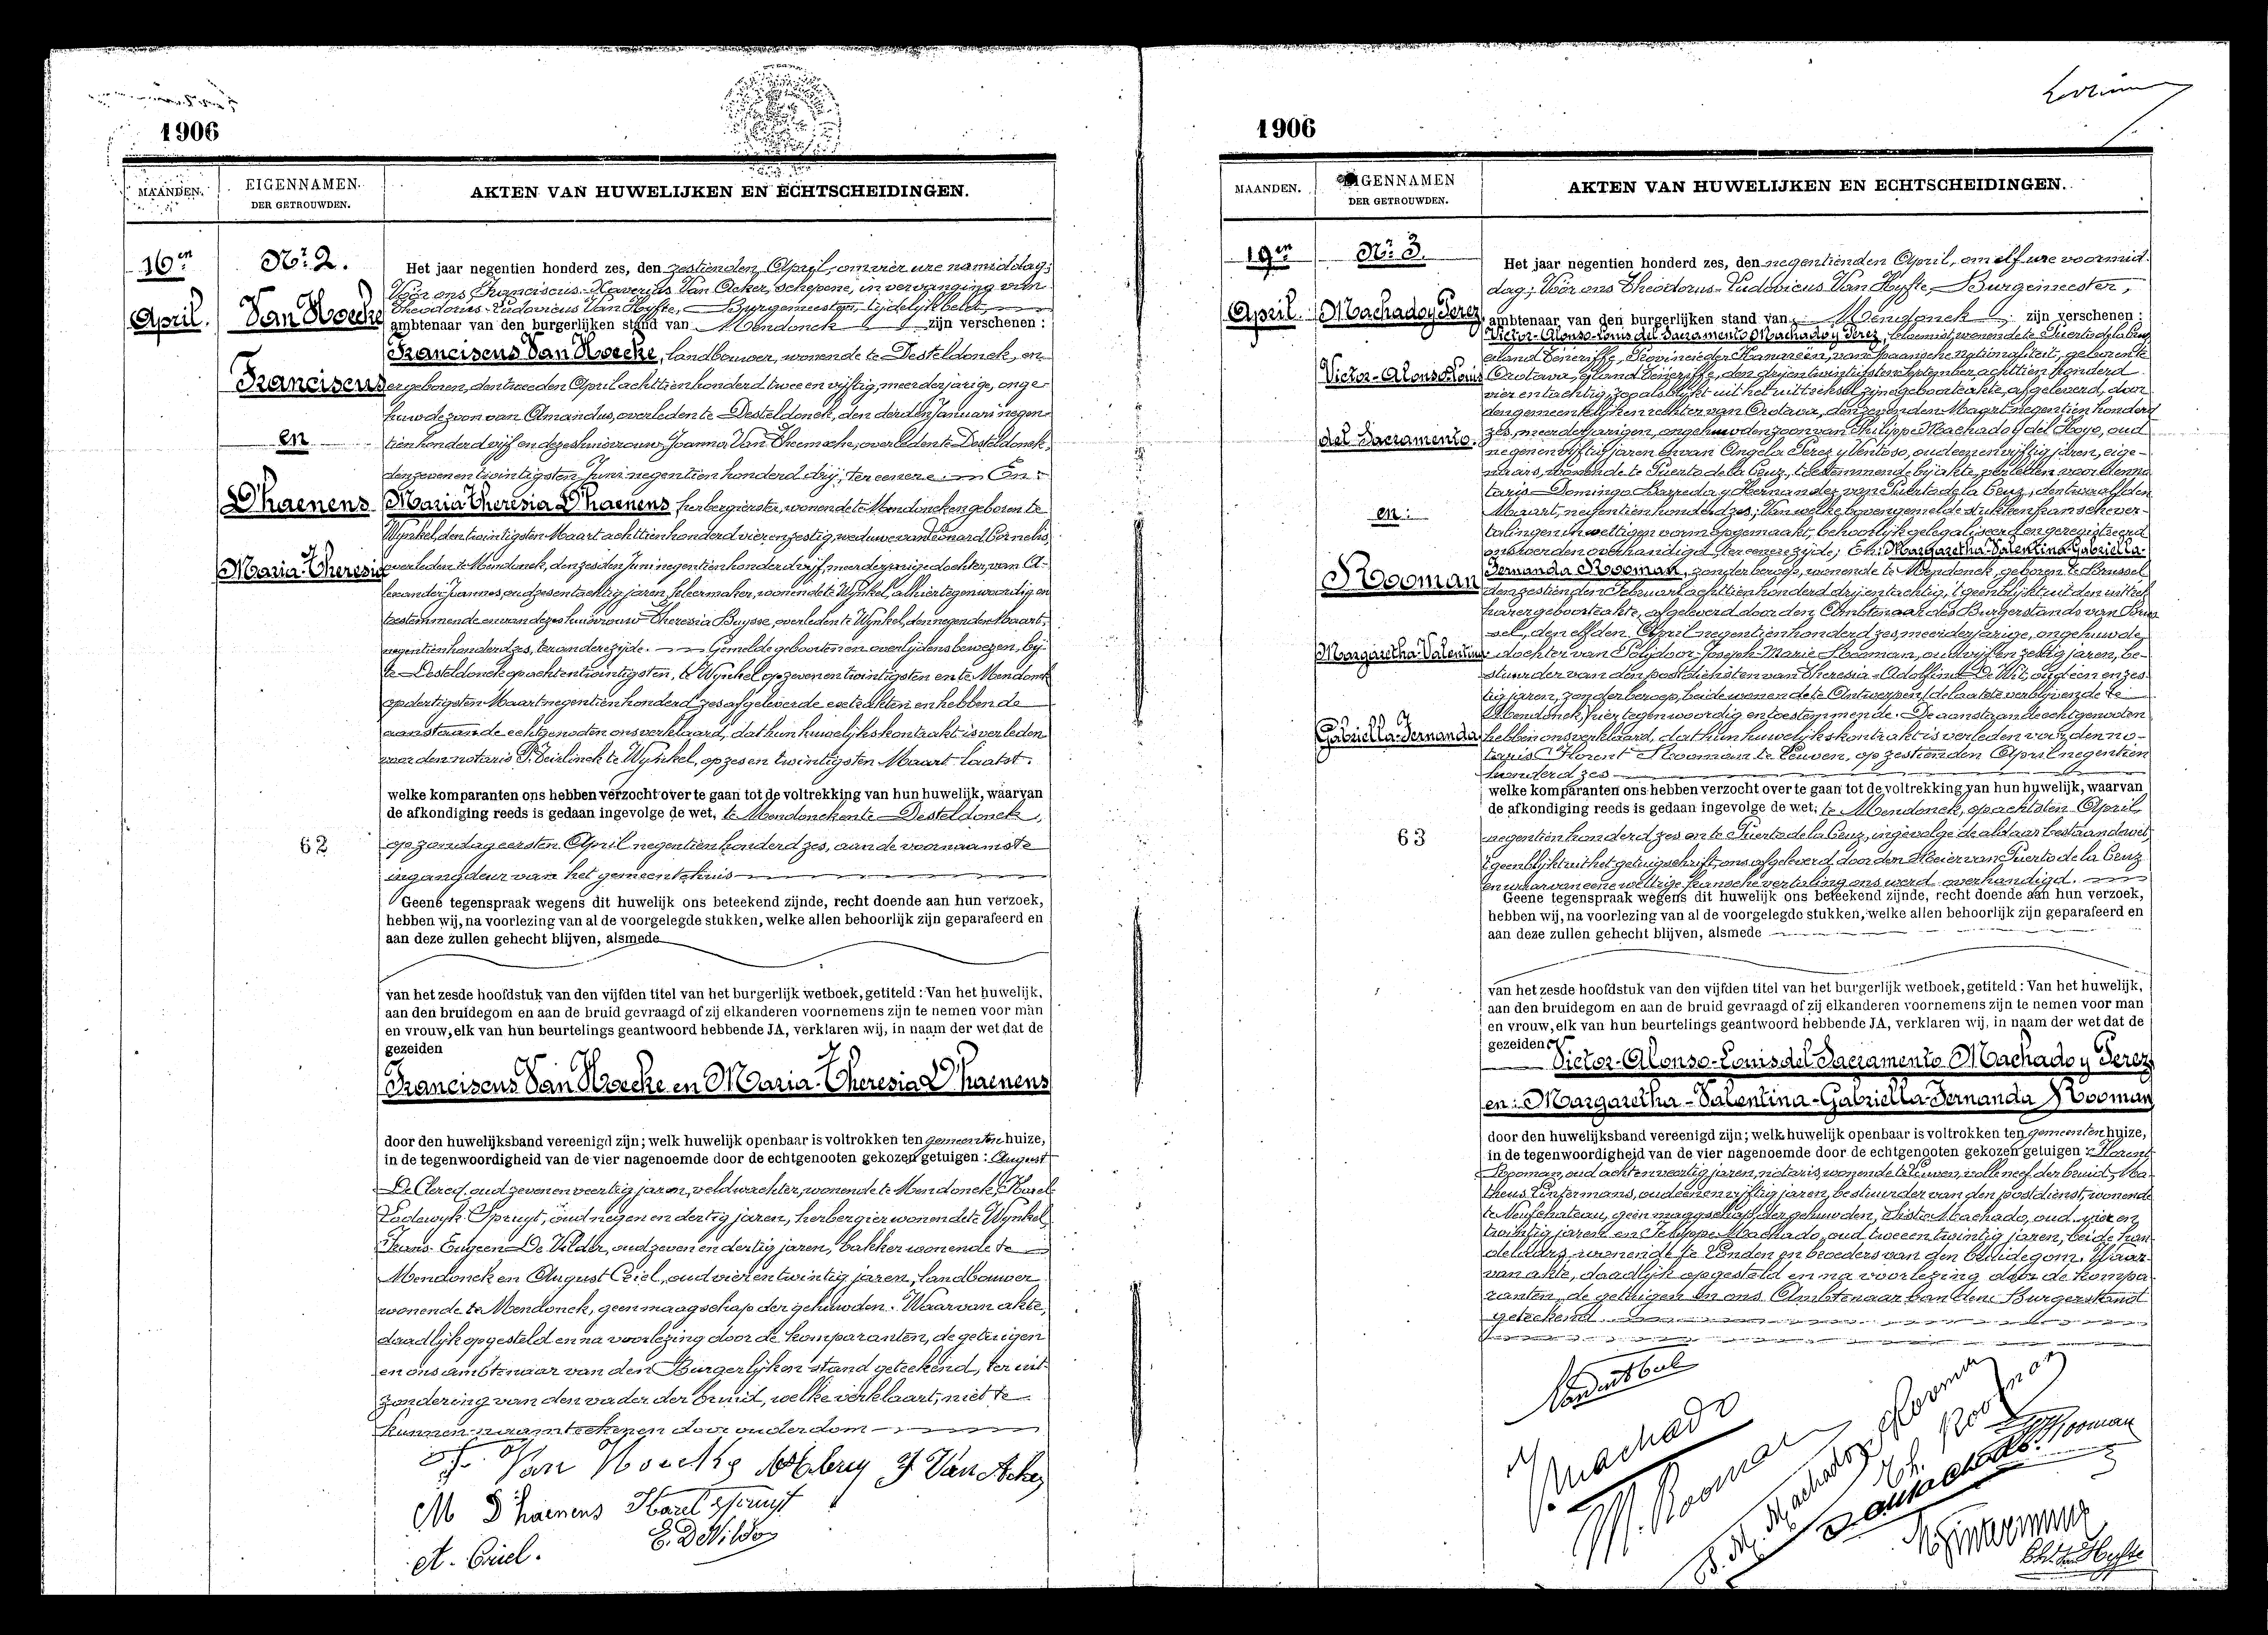 1906
MAANDEN.
EIGENNAMEN
DER GETROUWDEN.
AKTEN VAN HUWELIJKEN EN ECHTSCHEIDINGEN.
16en
April.
No. 2.
Van Hoecke
Franciscus
en
D'haenens
Maria-Theresia
62
Het jaar negentien honderd zes, den zestienden April, om vier ure namiddag;
Vóór ons Franciscus-Xaverius Van Acker, schepene, in vervanging van
Theodorus-Ludovicus Van Hyfte, Burgemeester, tijdelijk belet,
ambtenaar van den burgerlijken stand van Mendonck zijn verschenen:
Franciscus Van Hoecke, landbouwer, wonende te Desteldonck, en
er geboren, den tweeden April achttien honderd twee en vijftig, meerderjarige, onge-
huwde zoon van Amandus, overleden te Desteldonck, den derden Januari negen-
tien honderd vijf en dezes huisvrouw Joanna Van Theemsche, overleden te Desteldonck,
den zeven en twintigsten Juni negentien honderd drij, ter eenere; En:
Maria Theresia D'haenens herbergierster, wonende te Mendonck en geboren te
Wynkel, den twintigsten Maart achttien honderd vier en zestig, weduwe van Leonard Cornelis,
overleden te Mendonck, den zesden Juni negentien honderd vijf, meerderjarige dochter, van A-
lexander Joannes, oud zes en tachtig jaren, wonende te Wynkel, alhier tegenwoordig en
toestemmende en van dezes huisvrouw Theresia Buysse, overleden te Wynkel, den negenden Maart,
negentien honderd zes, ter andere zijde. Gemelde geboorten en overlijdens bewezen, bij
te Desteldonck op acht en twintigsten, te Wynkel op zeven en twintigsten en te Mendonck
op dertigsten Maart negentien honderd zes afgeleverde extrakten en hebben de
aanstaande echtgenoten ons verklaard, dat hun huwelijkskontrakt is verleden
voor den notaris te Wynkel, op zes en twintigsten Maart laatst.
welke komparanten ons hebben verzocht over te gaan tot de voltrekking van hun huwelijk, waarvan
de afkondiging reeds is gedaan ingevolge de wet, te Mendonck en te Desteldonck,
op zondag eersten April negentien honderd zes, aan de voornaamste
ingangdeur van het gemeentehuis
Geene tegenspraak wegens dit huwelijk ons beteekend zijnde, recht doende aan hun verzoek,
hebben wij, na voorlezing van al de voorgelegde stukken, welke allen behoorlijk zijn geparafeerd en
aan deze zullen gehecht blijven, alsmede
van het zesde hoofdstuk van den vijfden titel van het burgerlijk wetboek, getiteld: Van het huwelijk,
aan den bruidegom en aan de bruid gevraagd of zij elkanderen voornemens zijn te nemen voor man
en vrouw, elk van hun beurtelings geantwoord hebbende JA, verklaren wij, in naam der wet dat de
gezeiden
Franciscus Van Hoecke en Maria-Theresia D'haenens
door den huwelijksband vereenigd zijn; welk huwelijk openbaar is voltrokken ten gemeentenhuize,
in de tegenwoordigheid van de vier nagenoemde door de echtgenooten gekozen getuigen: August
De Clercq, oud zeven en veertig jaren, veldwachter, wonende te Mendonck, Karel
Lodewyk Spruyt, oud negen en dertig jaren, herbergier wonende te Wynkel,
Frans Eugeen De Vilder, oud zeven en dertig jaren, bakker wonende te
Mendonck en August Criel, oud vier en twintig jaren, landbouwer
wonende te Mendonck, geen maagschap der gehuwden. Waarvan akte,
daadlijk opgesteld en na voorlezing door de komparanten, de getuigen
en ons ambtenaar van den Burgerlijken stand geteekend, ter uit-
zondering van den vader der bruid, welke verklaart, niet te
kunnen naamteekenen door ouderdom
F. Van Hoecke F Van Acker
M D'haenens Karel Spruyt
A. Criel. E. De Vilder
1906
MAANDEN.
EIGENNAMEN
DER GETROUWDEN.
AKTEN VAN HUWELIJKEN EN ECHTSCHEIDINGEN.
19en
April.
No. 3.
Machado y Perez
Victor-Alonso-Louis
del Sacramento.
en:
Rooman
Margaretha-Valentina
Gabriella-Fernanda
63
Het jaar negentien honderd zes, den negentienden April, om elf ure voormid-
dag; Vóór ons Theodorus-Ludovicus Van Hyfte, Burgemeester,
ambtenaar van den burgerlijken stand van Mendonck zijn verschenen:
Victor-Alonso-Louis del Sacramento Machado y Perez, bloemist, wonende te Puerto de la Cruz,
eiland Teneriffe, Provincie der Kanarieën, van spaansche nationaliteit, geboren te
Orotava, eiland Teneriffe, den drij en twintigsten September achttien honderd
vier en tachtig, zoo als blijkt uit het uittreksel zijner geboorteakte, afgeleverd, door
den gemeentelijken rechter van Orotava, den zevenden Maart negentien honderd
zes, meerderjarigen, ongehuwden zoon van Philippe Machado y del Hoyo, oud
negen en vijftig jaren en van Angela Perez y Ventoso, oud een en vijftig jaren, eige-
naars, wonende te Puerto de la Cruz, toestemmende bij akte, verleden voor den no-
taris Domingo Barreda y Hernandez van Puerto de la Cruz, den twaalfden
Maart, negentien honderd zes; Van welke bovengemelde stukken fransche ver-
talingen in wettigen vorm opgemaakt, behoorlijk gelegaliseerd en geregistreerd
ons werden overhandigd ter eenere zijde; En: Margaretha-Valentina-Gabriella-
Fernanda Rooman, zonder beroep, wonende te Mendonck, geboren te Brussel
den zestienden Februari achttien honderd drij en tachtig, 't geen blijkt uit den uittrek
harer geboorteakte, afgeleverd door den Ambtenaar des Burgerstands van Brus-
sel, den elfden April negentien honderd zes, meerderjarige, ongehuwde
dochter van Polydoor-Joseph-Marie Rooman, oud vijf en zestig jaren, be-
stuurder van den postdienst en van Theresia-Adolfina De Wit, oud een en zes-
tig jaren, zonder beroep, beide wonende te Antwerpen (de laatste verblijvende te
Mendonck) hier tegenwoordig en toestemmende. De aanstaande echtgenoten
hebben ons verklaard, dat hun huwelijkskontrakt is verleden voor den no-
taris Florent Rooman te Leuven, op zestienden April negentien
honderd zes
welke komparanten ons hebben verzocht over te gaan tot de voltrekking van hun huwelijk, waarvan
de afkondiging reeds is gedaan ingevolge de wet, te Mendonck, op achtsten April
negentien honderd zes en te Puerto de la Cruz, ingevolge de aldaar bestaande wet,
't geen blijkt uit het getuigschrift, ons afgeleverd door den Meier van Puerto de la Cruz
en waarvan eene wettige fransche vertaling ons werd overhandigd.
Geene tegenspraak wegens dit huwelijk ons beteekend zijnde, recht doende aan hun verzoek,
hebben wij, na voorlezing van al de voorgelegde stukken, welke allen behoorlijk zijn geparafeerd en
aan deze zullen gehecht blijven, alsmede
van het zesde hoofdstuk van den vijfden titel van het burgerlijk wetboek, getiteld: Van het huwelijk,
aan den bruidegom en aan de bruid gevraagd of zij elkanderen voornemens zijn te nemen voor man
en vrouw, elk van hun beurtelings geantwoord hebbende JA, verklaren wij, in naam der wet dat de
gezeiden
Victor-Alonso-Louis del Sacramento Machado y Perez
en: Margaretha-Valentina-Gabriella-Fernanda Rooman
door den huwelijksband vereenigd zijn; welk huwelijk openbaar is voltrokken ten gemeentenhuize,
in de tegenwoordigheid van de vier nagenoemde door de echtgenooten gekozen getuigen: Florent
Rooman, oud acht en veertig jaren, notaris, wonende te Leuven, volle neef der bruid, Ma-
theus Wintermans, oud een en vijftig jaren, bestuurder van den postdienst, wonende
te Neufchateau, geen maagschap der gehuwden, Sixto Machado, oud vier en
twintig jaren en Philippe Machado, oud twee en twintig jaren, beide han-
delaars, wonende te Londen en broeders van den bruidegom. Waar-
van akte, daadlijk opgesteld en na voorlezing door de kompa-
ranten, de getuigen en ons Ambtenaar van den Burgerstand
geteekend.
V. Machado
M. Rooman
Th. Van Hyfte